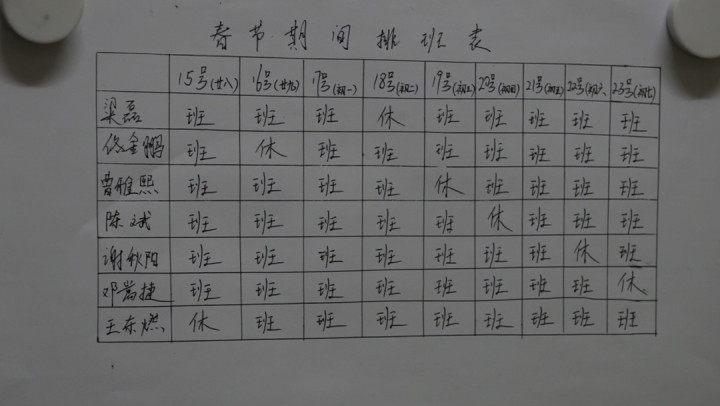 春节期间排班表
15号(廿八) 16号(廿九) 17号(初一) 18号(初二) 19号(初三) 20号(初四) 21号(初五) 22号(初六) 23号(初七)
梁磊 班 班 班 休 班 班 班 班 班
金鹏 班 休 班 班 班 班 班 班 班
曹雅熙 班 班 班 班 休 班 班 班 班
陈斌 班 班 班 班 班 休 班 班 班
谢秋阳 班 班 班 班 班 班 班 休 班
邓嵩捷 班 班 班 班 班 班 班 班 休
王东燃 休 班 班 班 班 班 班 班 班